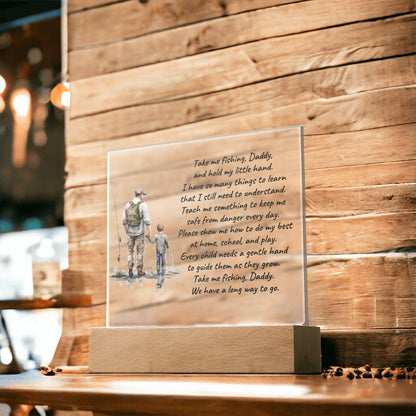 Take me fishing, Daddy,
and hold my little hand.
I have so many things to learn
that I still need to understand.
Teach me something to keep me
safe from danger every day.
Please show me how to do my best
at home, school, and play.
Every child needs a gentle hand
to guide them as they grow.
Take me fishing, Daddy.
We have a long way to go.